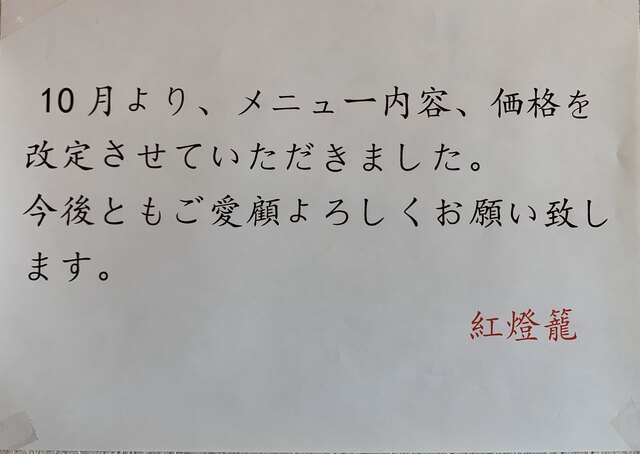 10月より、メニュー内容、価格を
改定させていただきました。
今後ともご愛顧よろしくお願い致し
ます。
紅燈籠